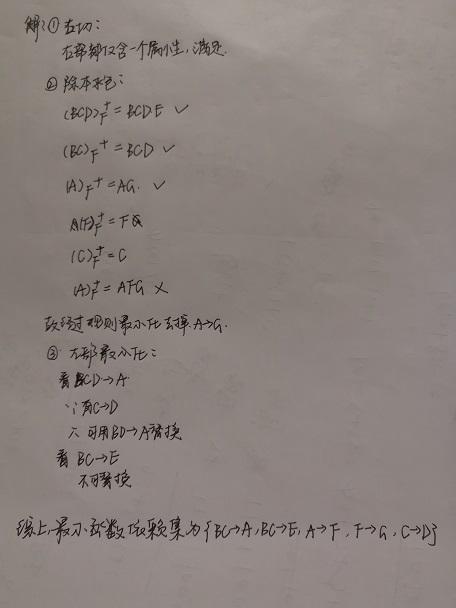 解:① 右切:
右部都仅含一个属性,满足.
② 除本求包:
(BCD)F+ = BCDE ✓
(BC)F+ = BCD ✓
(A)F+ = AG. ✓
(F)F+ = F
(C)F+ = C
(A)F+ = AFG ×
故经过规则最小化去掉 A→G.
③ 左部最小化:
看 BCD→A
∵有C→D
∴ 可用BD→A替换
看 BC→E
不可替换
综上,最小函数依赖集为{BC→A,BC→E,A→F,F→G,C→D}